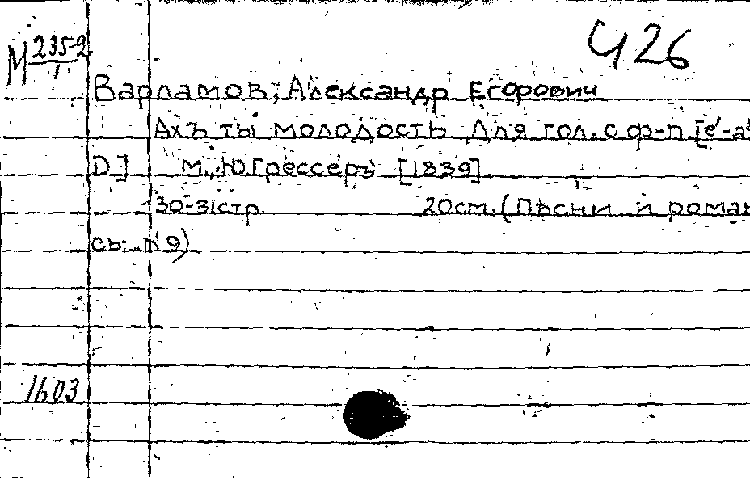 Ч26
М 235-2
1
Варламов, Александр Егорович
Ахъ ты молодость Для гол. с ф-п. [e'-a'
D] М., Ю Грессеръ [1839]
30-31стр. 20см. (Пѣсни и роман
сы №9)
1603